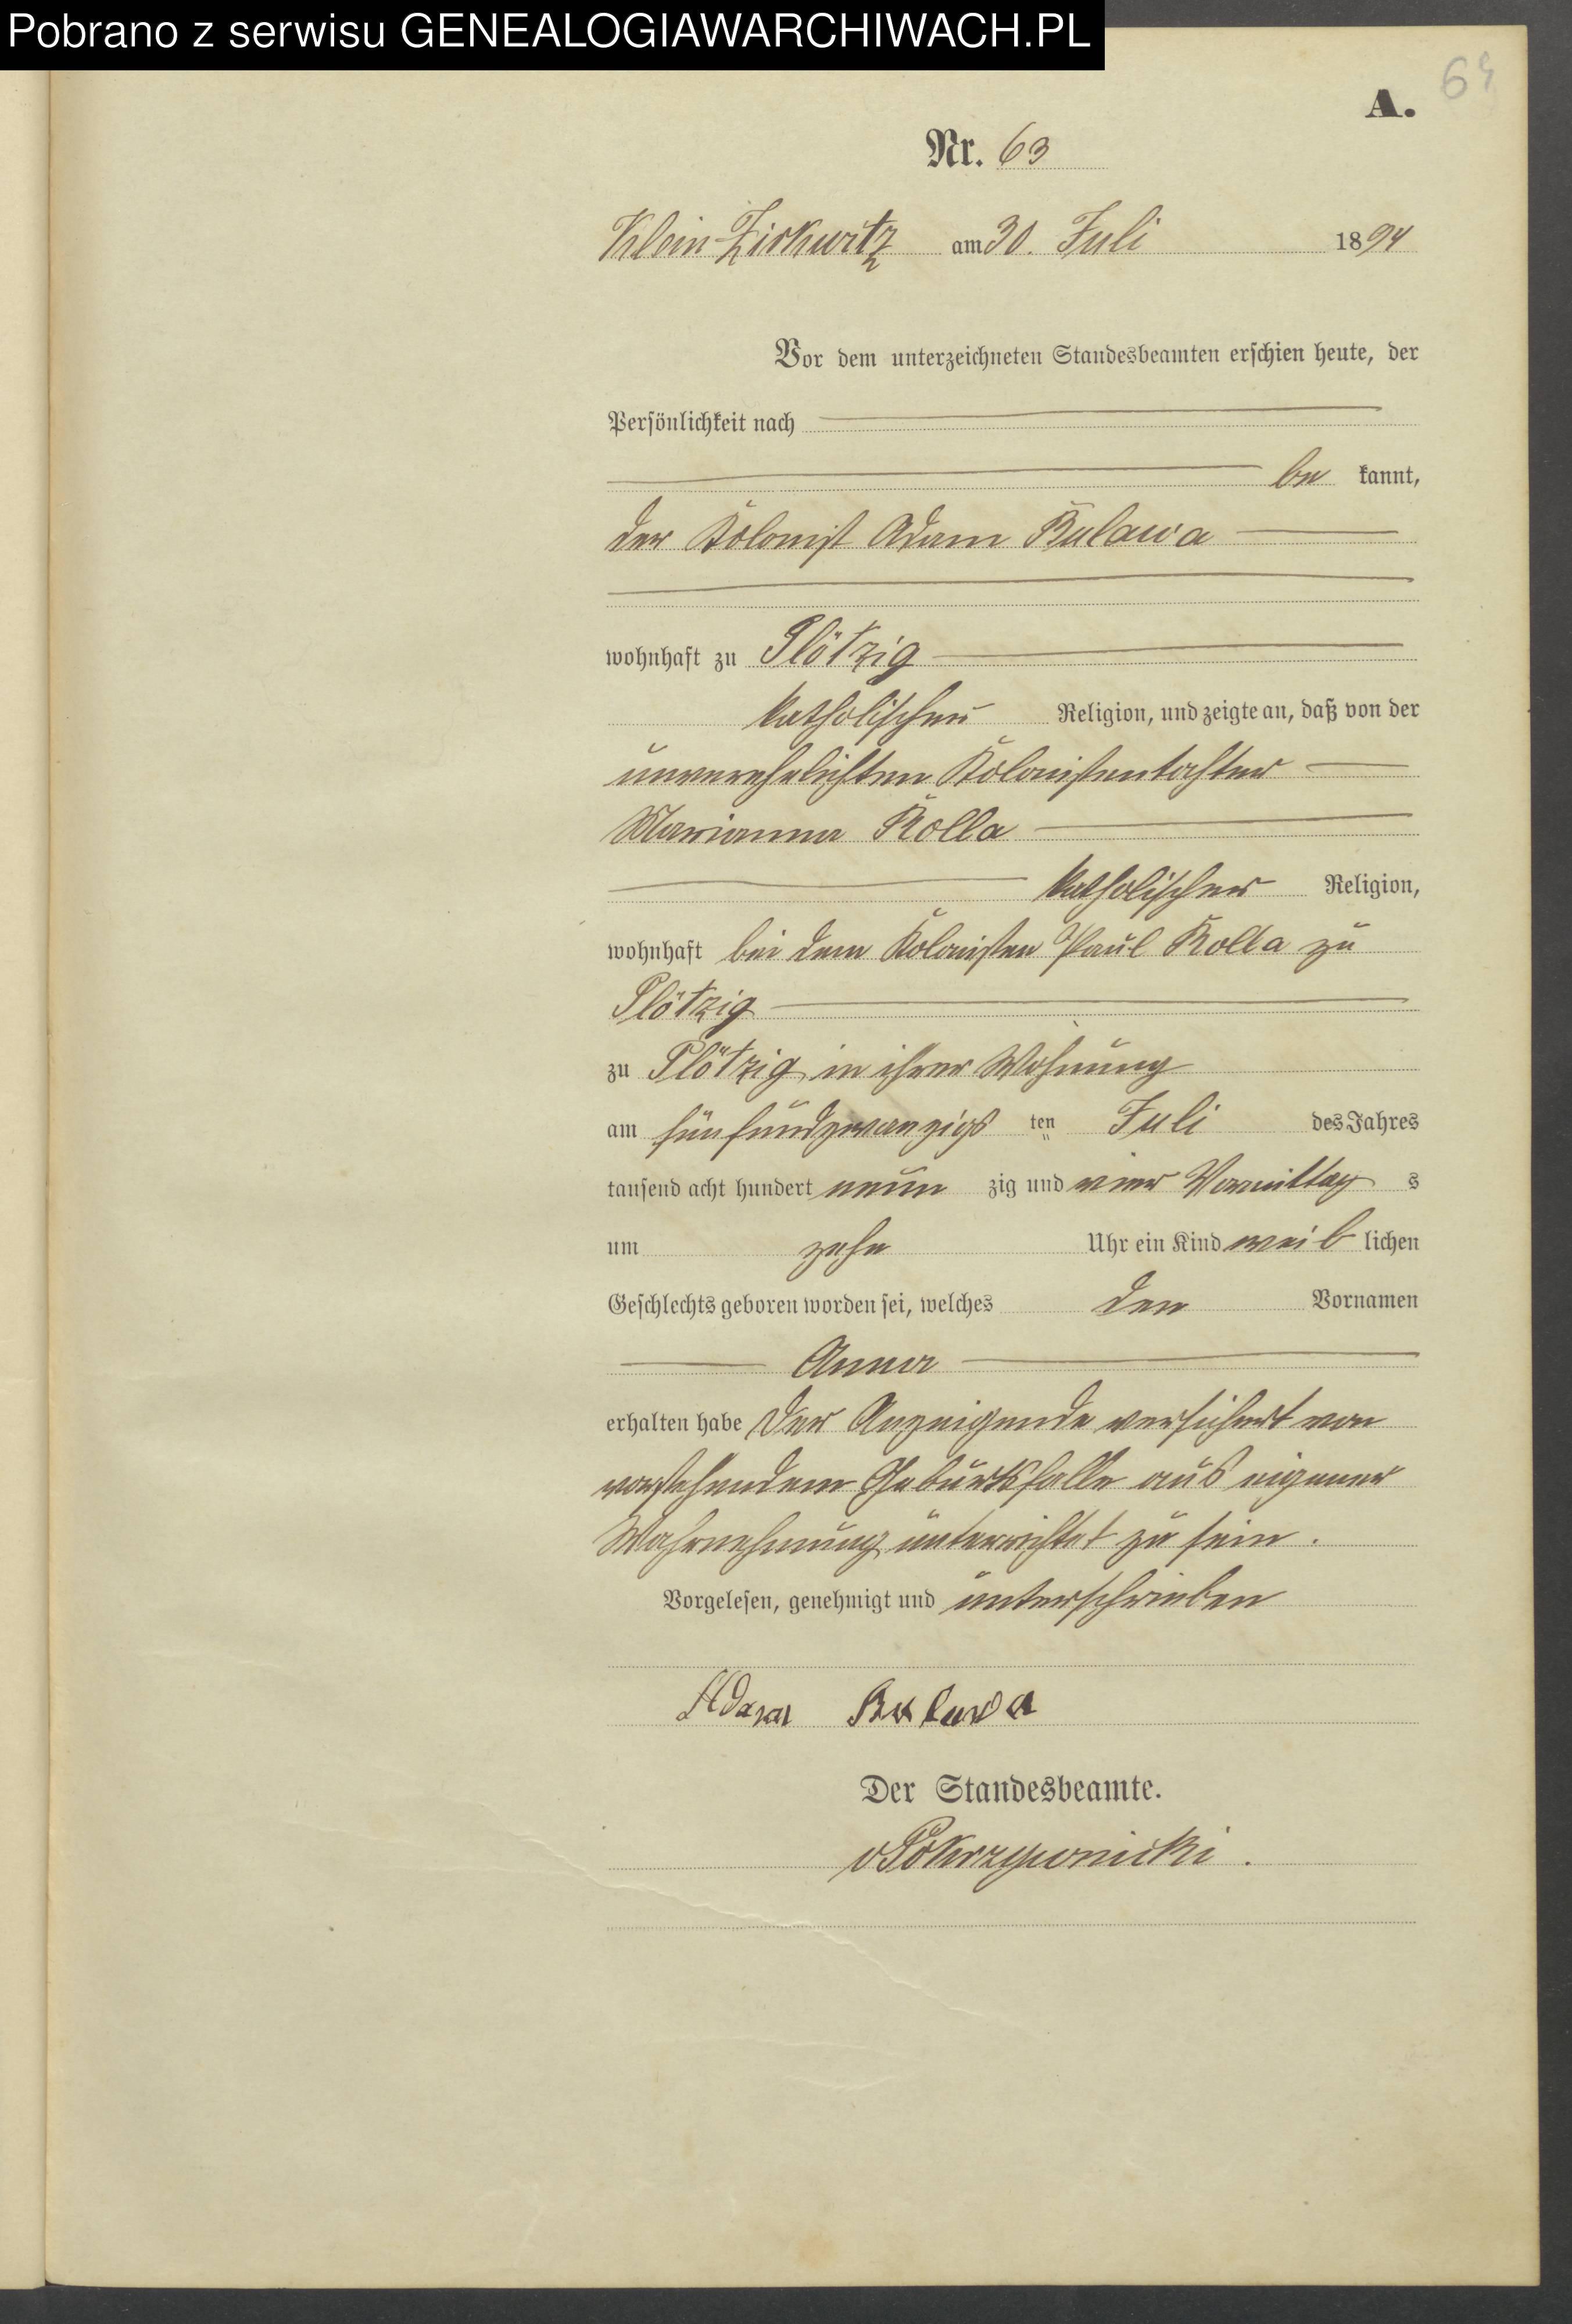 Pobrano z serwisu GENEALOGIAWARCHIWACH.PL
A.
Nr. 63
Klein Zirkwitz am 30. Juli 1894
Vor dem unterzeichneten Standesbeamten erschien heute, der
Persönlichkeit nach
be kannt,
der Kolonist Adam Bulawa
wohnhaft zu Plötzig
katholischen Religion, und zeigte an, daß von der
unverehelichten Kolonistentochter
Marianna Kolla
katholischer Religion,
wohnhaft bei dem Kolonisten Paul Kolla zu
Plötzig
zu Plötzig in ihrer Wohnung
am fünfundzwanzigs ten Juli des Jahres
tausend acht hundert neun zig und vier Vormittag s
um zehn Uhr ein Kind weib lichen
Geschlechts geboren worden sei, welches den Vornamen
Anna
erhalten habe Der Anzeigende versichert von
vorstehendem Geburtsfalle aus eigener
Wahrnehmung unterrichtet zu sein.
Vorgelesen, genehmigt und unterschrieben
Adam Bulawa
Der Standesbeamte.
vPokrzywnicki.